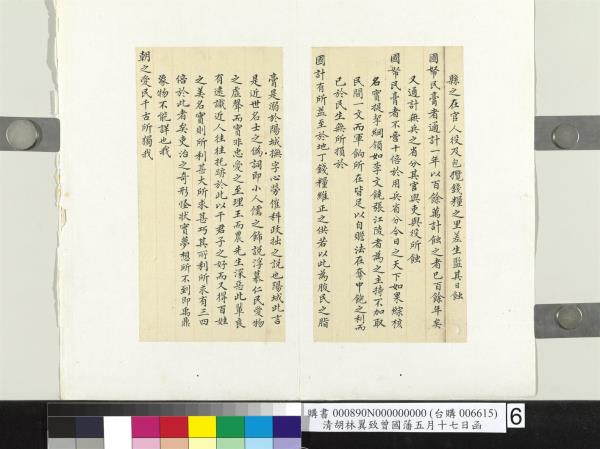 縣之在官人役及包攬錢糧之里差生監其日蝕
國帑民膏者通計一年以百餘萬計蝕之者已百餘年矣
又通計無兵之省分其官與吏與役所蝕
國帑民膏者不啻十倍於用兵省分今日之天下如果綜核
名實提挈綱領如李文饒張江陵者為之主持不加取
民間一文而軍餉所在皆足以自贍法在奪中飽之利而
已於民生無所損於
國計有所益至於地丁錢糧維正之供若以此為朘民之脂
膏是溺於陽城撫字心勞催科政拙之說也陽城此言
是近世名士之偽詞即小人儒之飾說浮慕仁民愛物
之虛聲而實非忠愛之至理王而農先生深惡此輩良
有遠識近人往往托跡於此以干君子之好而又得百姓
之美名實則所利甚大所求甚巧其所利所求有三四
倍於此者矣吏治之奇形怪狀實夢想所不到即禹鼎
象物不能詳也我
朝之愛民千古所獨我
購書 000890N000000000 (台購 006615)
清胡林翼致曾國藩五月十七日函
6